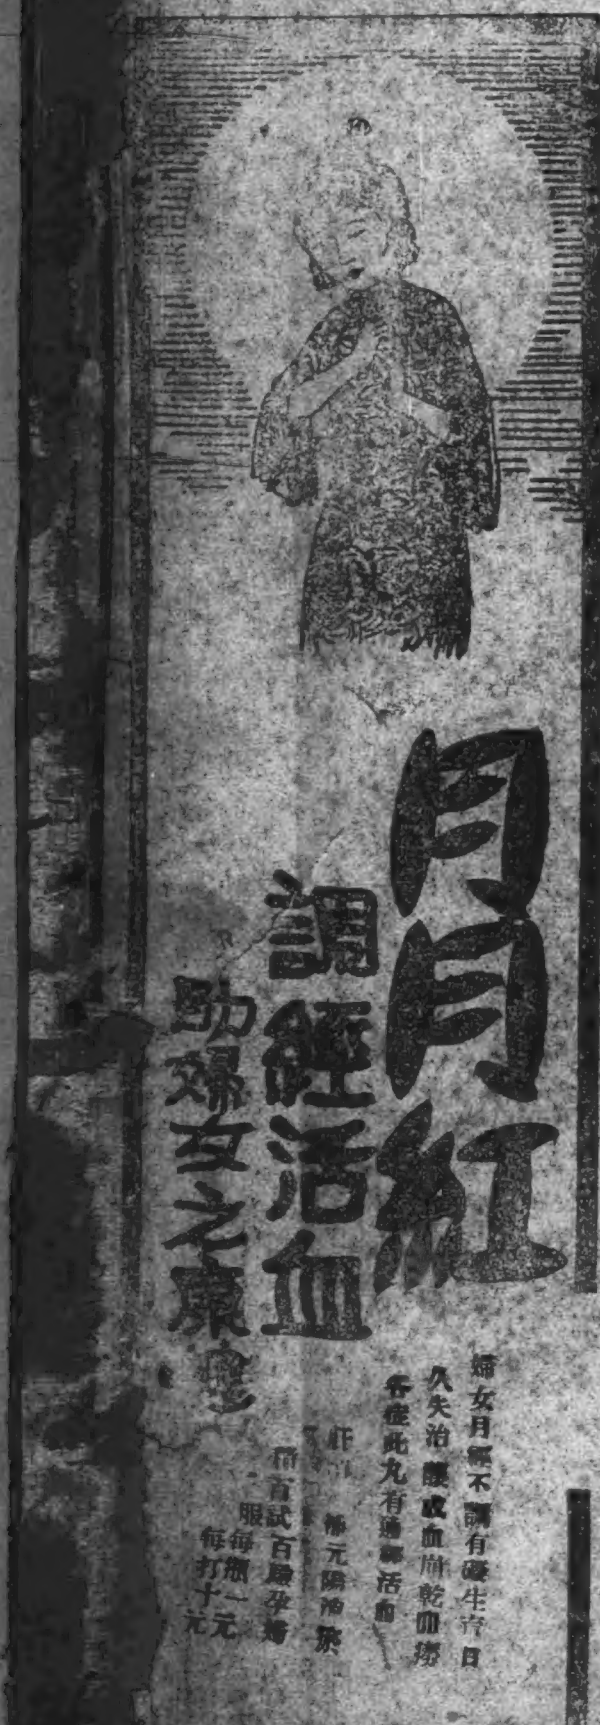 月月紅
調經活血
助婦女之康
婦女月經不調有礙生育日
久失治釀成血崩乾血癆
各症此丸有通經活血
補元
百試百驗孕婦
服每瓶一元
每打十元